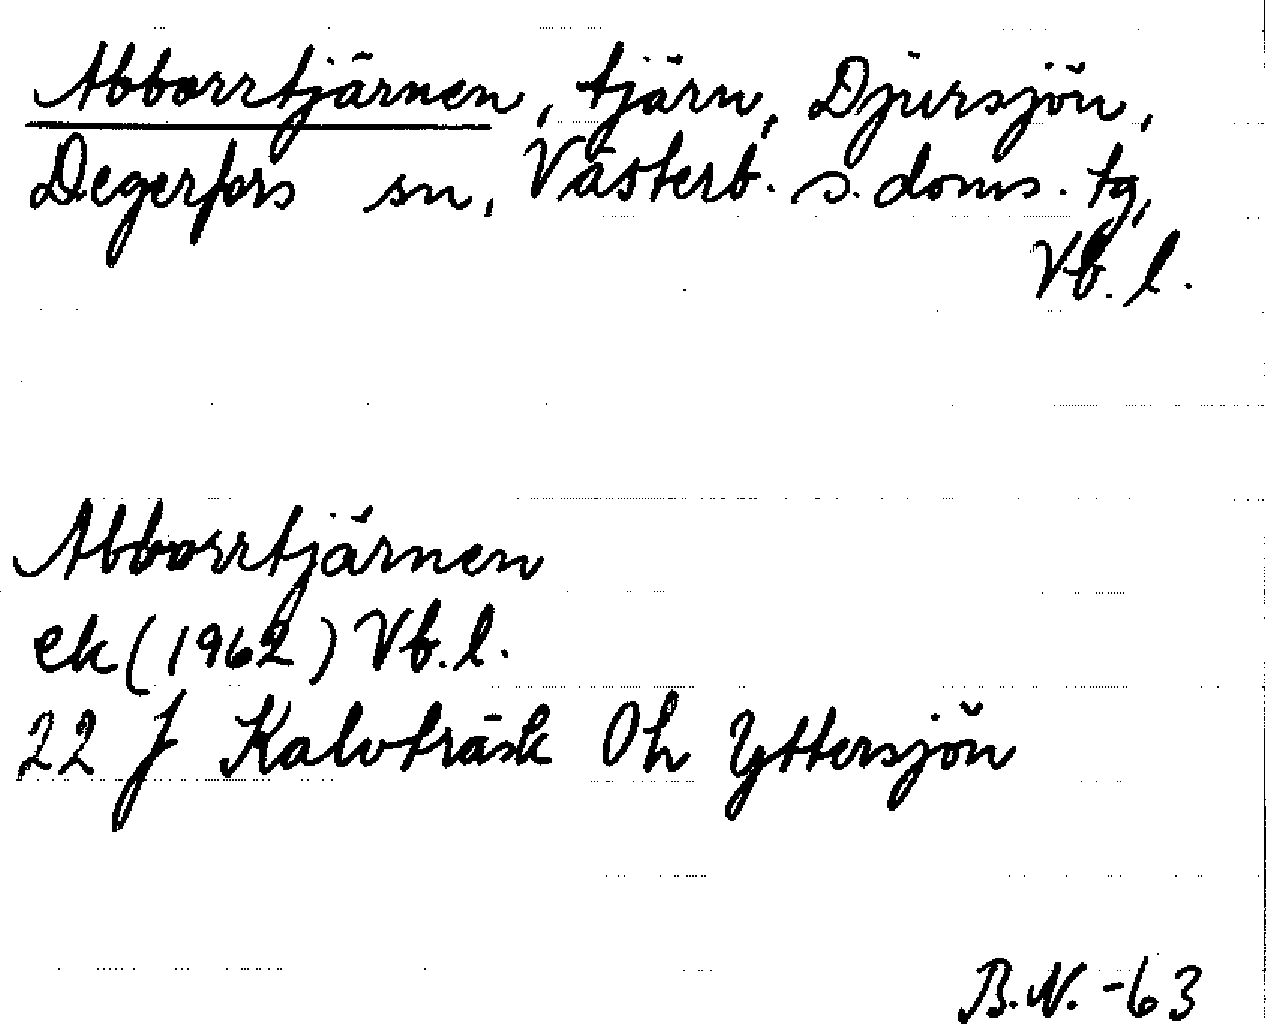 Abborrtjärnen, tjärn, Djursjön,
Degerfors sn, Västerb. s. doms. tg,
Vb. l.
Abborrtjärnen
ek (1962) Vb. l.
22 J Kalvträsk 0h Yttersjön
B.N. -63